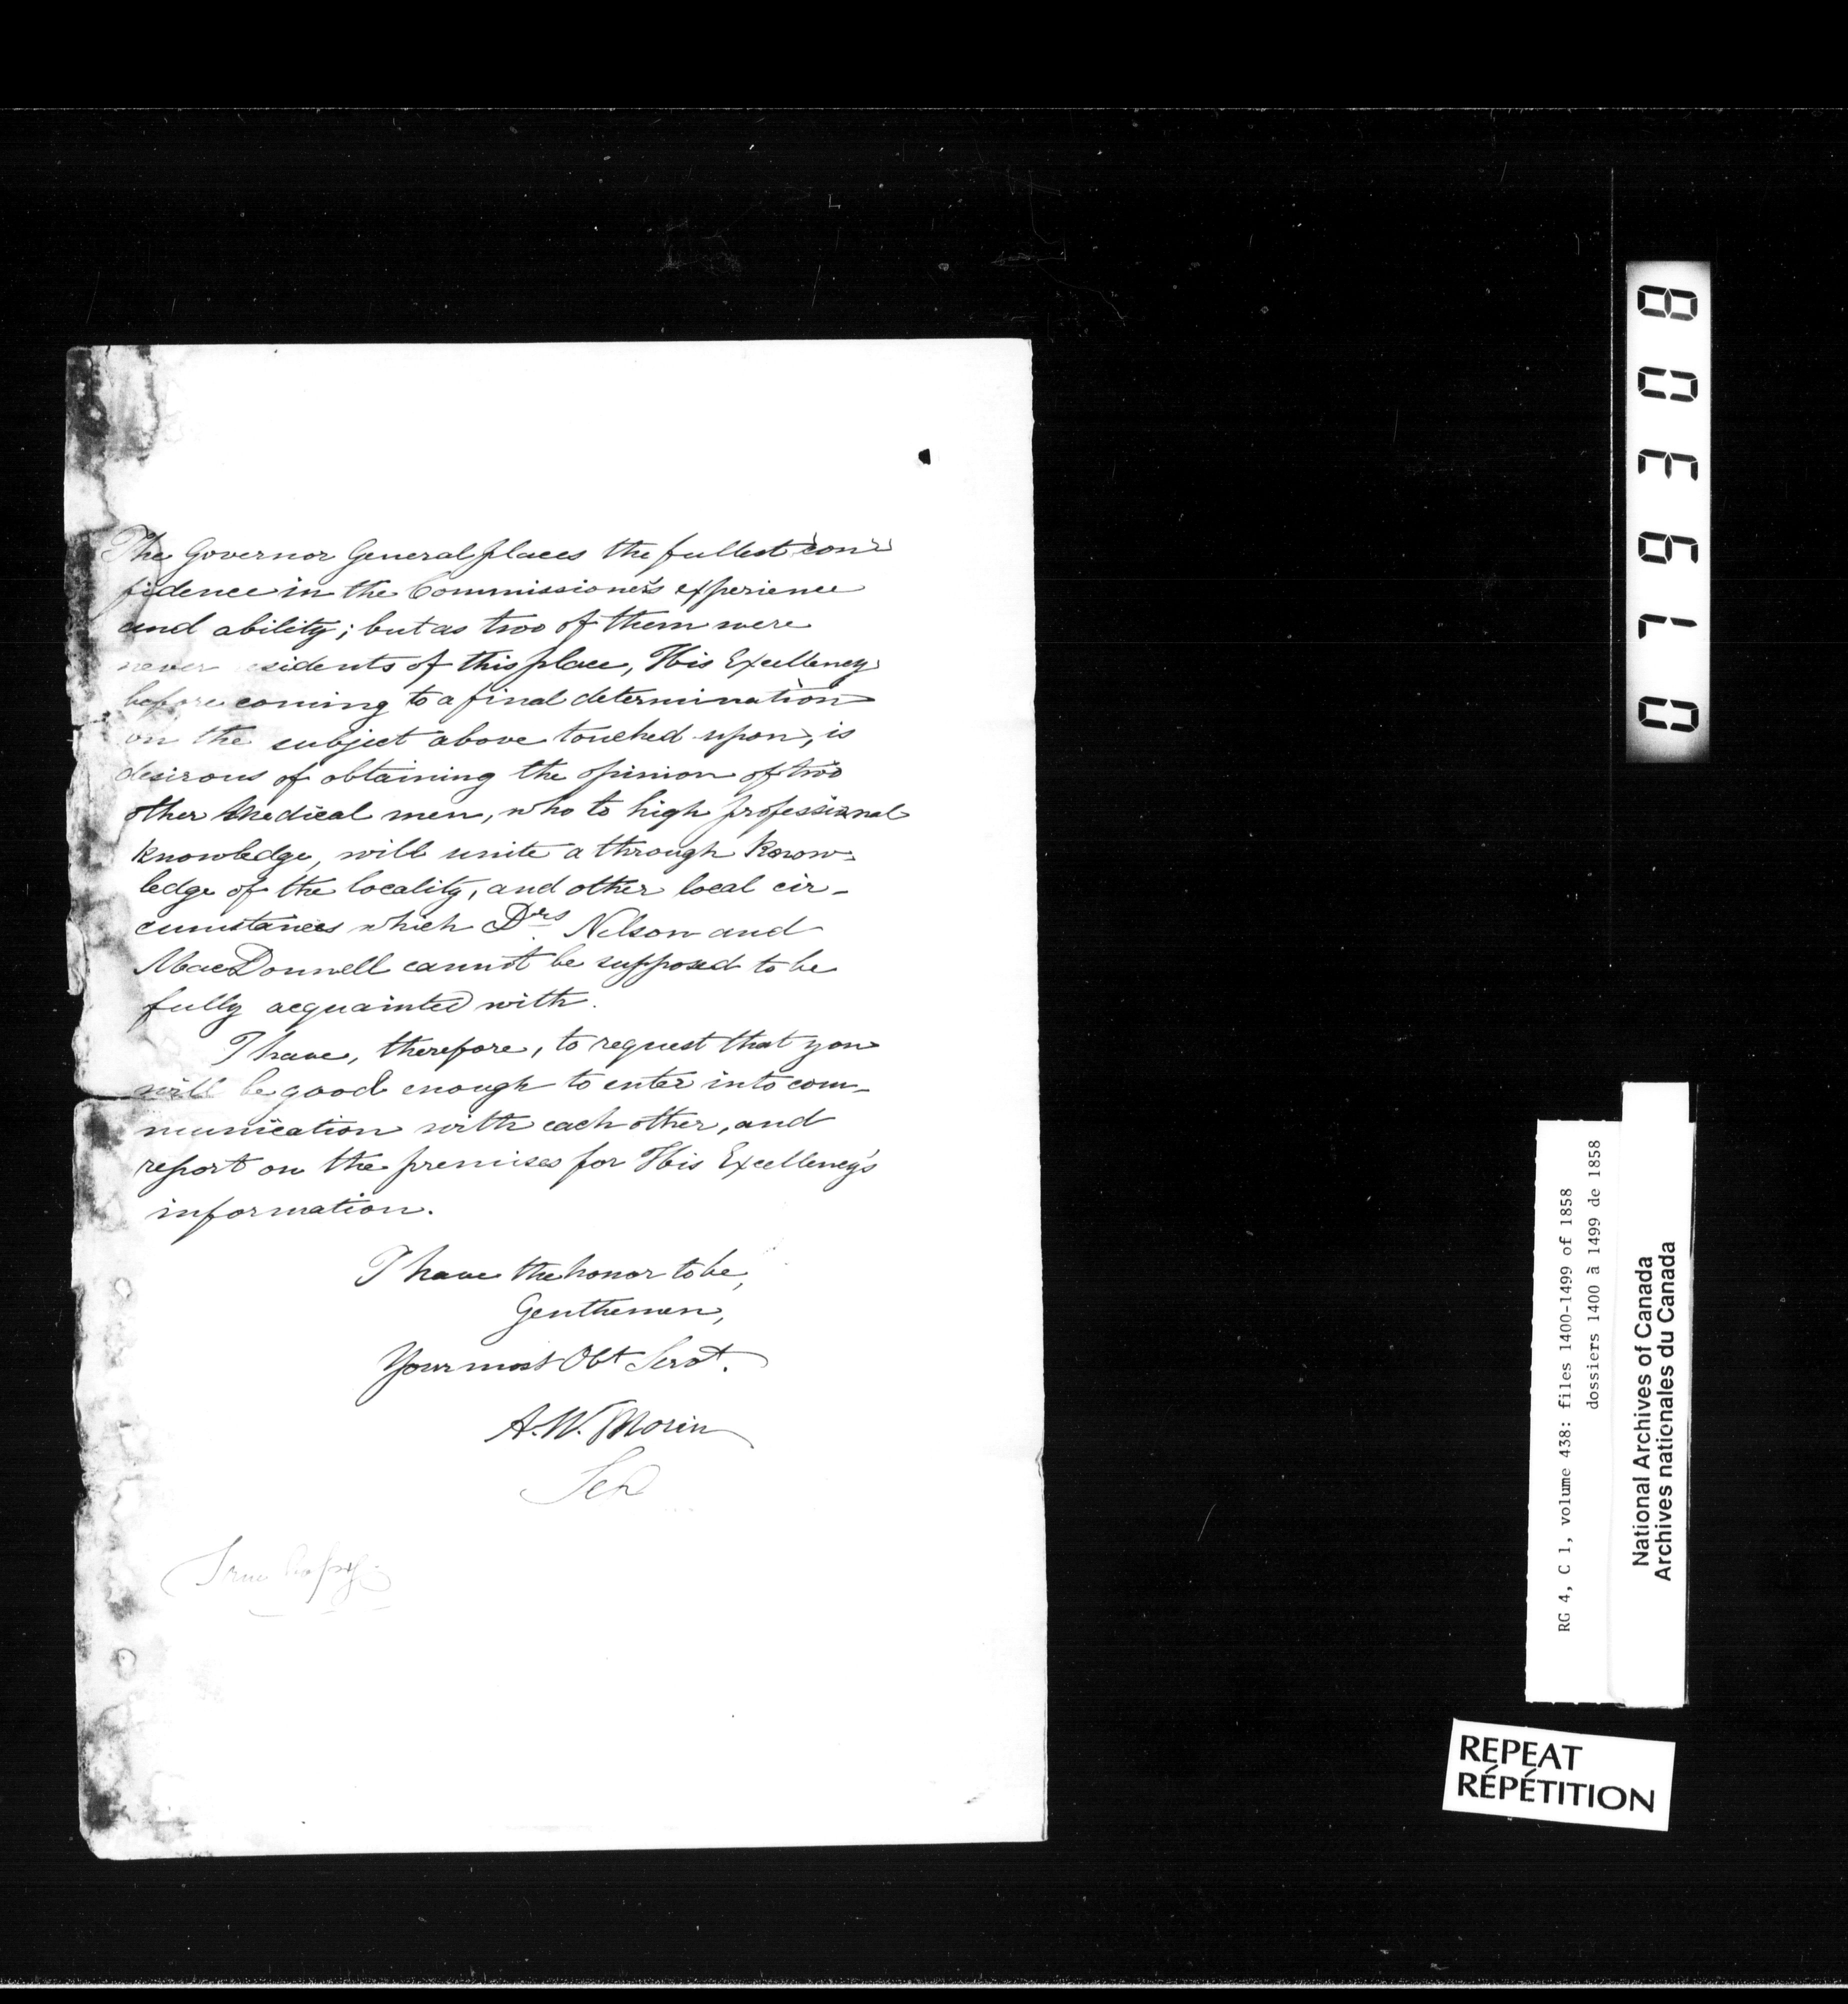 The Governor General places the fullest con-
fidence in the Commissioners experience
and ability; but as two of them were
never esidents of this place, His Excellency
before coming to a final determination
on the subject above touched upon, is
desirous of obtaining the opinion of two
other Medical men, who to high professional
knowledge, will unite a through know-
ledge of the locality, and other local cir-
cumstances which Drs Nelson and
MacDonnell cannot be supposed to be
fully acquainted with.
I have, therefore, to request that you
will be good enough to enter into com-
munication with each other, and
report on the premises for His Excellency's
information.
I have the honor to be,
Genthemen,
Your most Obt Servt.
A. N. Morin
True Copy
017963 08
RG 4, C 1, volume 438: files 1400-1499 of 1858
dossiers 1400 à 1499 de 1858
National Archives of Canada
Archives nationales du Canada
REPEAT
RÉPÉTITION